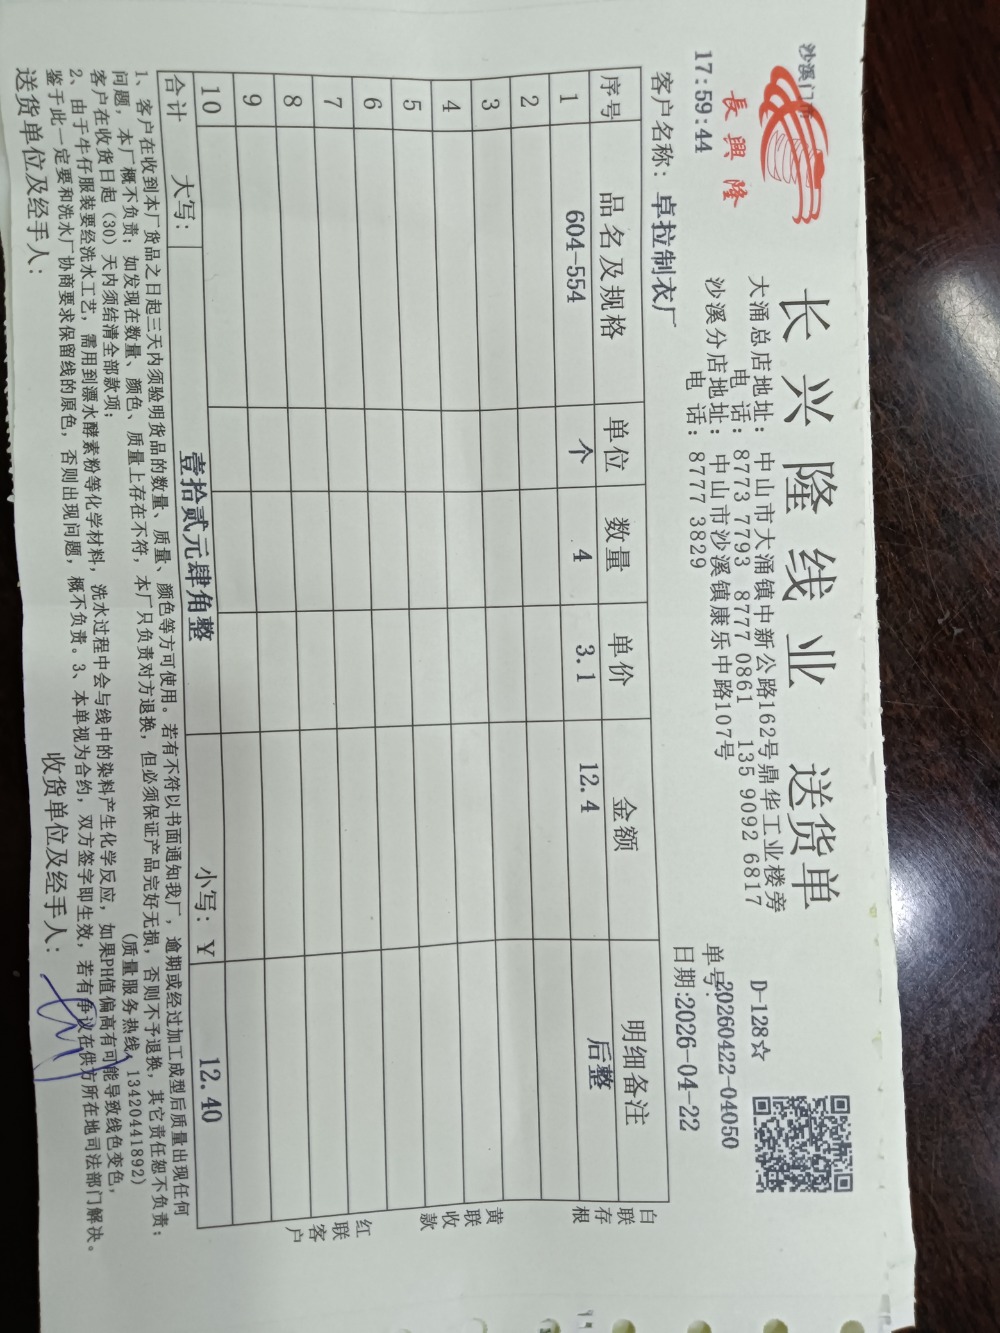 沙溪门市
長興隆
长兴隆线业 送货单
大涌总店地址：中山市大涌镇中新公路162号鼎华工业楼旁
电 话：8773 7793 8777 0861 135 9092 6817
沙溪分店地址：中山市沙溪镇康乐中路107号
电 话：8777 3829
17:59:44
D-128☆
单号：20260422-04050
日期:2026-04-22
客户名称：卓拉制衣厂
序号 品名及规格 单位 数量 单价 金额 明细备注
1 604-554 个 4 3.1 12.4 后整
2
3
4
5
6
7
8
9
10
合计 大写： 壹拾贰元肆角整 小写：￥ 12.40
白联存根
黄联收款
红联客户
1、客户在收到本厂货品之日起三天内须验明货品的数量、质量、颜色等方可使用。若有不符以书面通知我厂，逾期或经过加工成型后质量出现任何
问题，本厂概不负责；如发现在数量、颜色、质量上存在不符，本厂只负责对方退换，但必须保证产品完好无损，否则不予退换，其它责任恕不负责；
客户在收货日起（30）天内须结清全部款项； (质量服务热线：13420441892)
2、由于牛仔服装要经洗水工艺，需用到漂水酵素粉等化学材料，洗水过程中会与线中的染料产生化学反应，如果PH值偏高有可能导致线色变色，
鉴于此一定要和洗水厂协商要求保留线的原色，否则出现问题，概不负责。3、本单视为合约，双方签字即生效，若有争议在供方所在地司法部门解决。
送货单位及经手人： 收货单位及经手人：